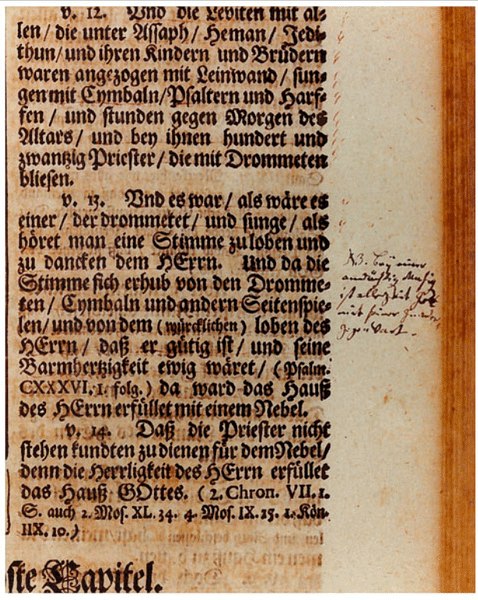 v. 12. Und die Leviten mit al-
len/ die unter Assaph/ Heman/ Jedi-
thun/ und ihren Kindern und Brüdern
waren angezogen mit Leinwand/ sun-
gen mit Cymbaln/ Psaltern und Harf-
fen/ und stunden gegen Morgen des
Altars/ und bey ihnen hundert und
zwantzig Priester/ die mit Drommeten
bliesen.
v. 13. Vnd es war/ als wäre es
einer/ der drommetet/ und sunge/ als
höret man eine Stimme zu loben und
zu dancken dem HErrn. Und da die
Stimme sich erhub von den Dromme-
ten/ Cymbaln und andern Seitenspie-
len/ und von dem (würcklichen) loben des
HErrn/ daß er gütig ist/ und seine
Barmhertzigkeit ewig wäret/ (Psalm.
CXXXVI. 1. folg.) da ward das Hauß
des HErrn erfüllet mit einem Nebel.
v. 14. Daß die Priester nicht
stehen kundten zu dienen für dem Nebel/
denn die Herrligkeit des HErrn erfüllet
das Hauß GOttes. (2. Chron. VII. 1.
S. auch 2. Mos. XL. 34. 4. Mos. IX. 15. 1. Kön.
IIX. 10.)
ste Capitel.
NB. Bey einer
andächtig Musiq
ist allezeit Gott
mit seiner Gnaden
Gegenwart.